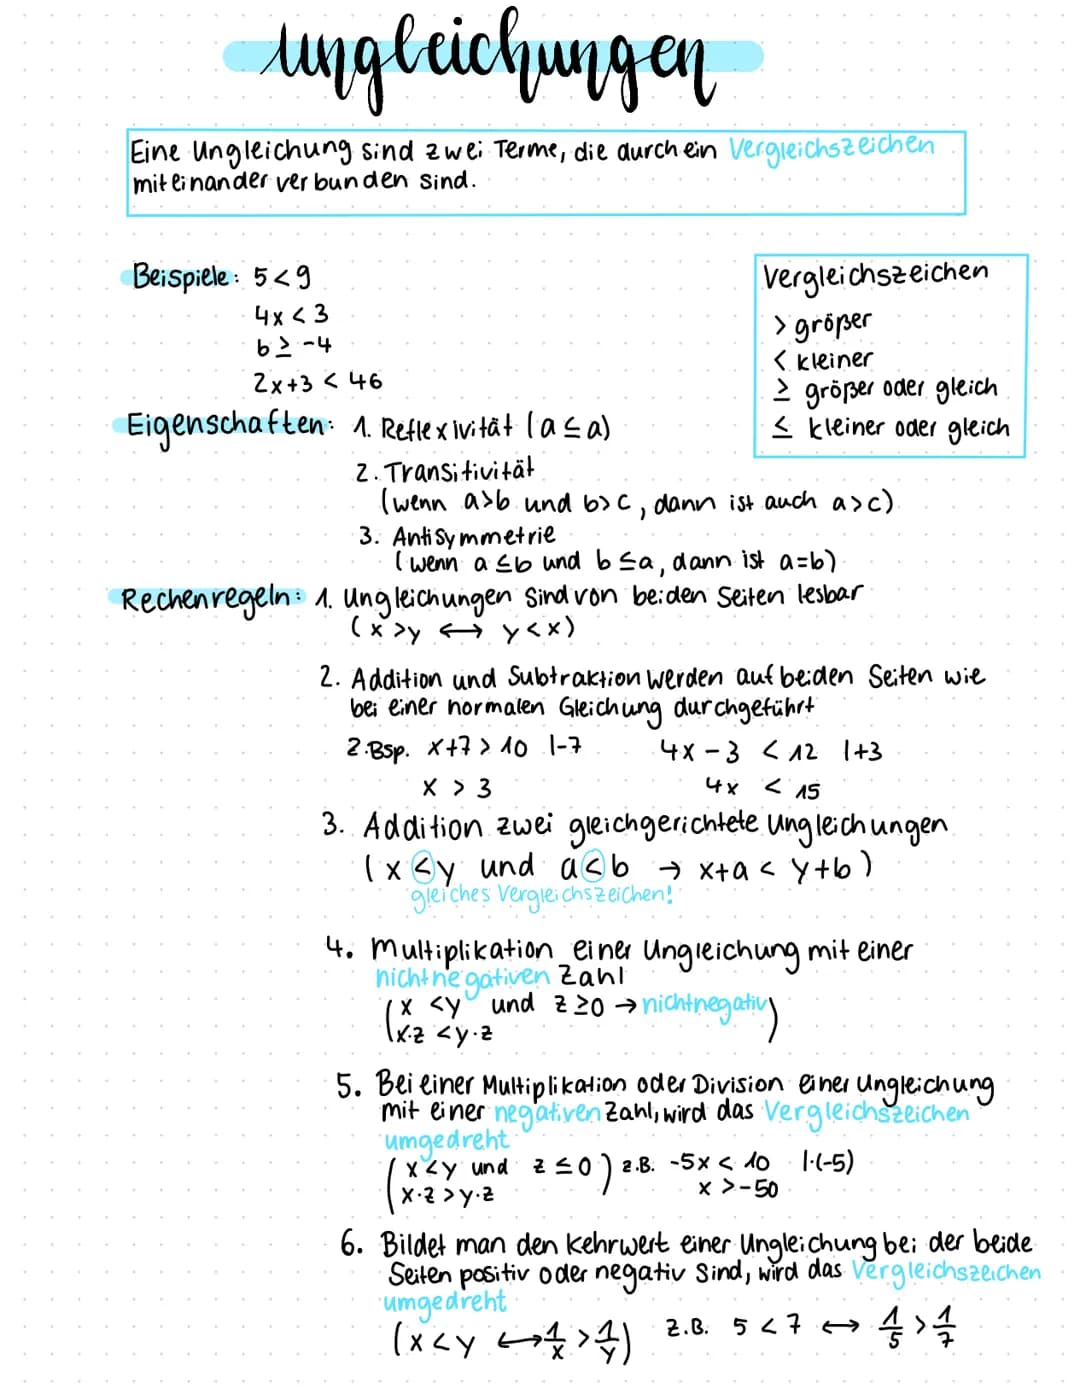 Ungleichungen
Eine Ungleichung sind zwei Terme, die durch ein Vergleichszeichen
miteinander verbunden sind.
Beispiele: 5 < 9
4x < 3
b ≥ -4
2x+3 < 46
Vergleichszeichen
> größer
< kleiner
≥ größer oder gleich
≤ kleiner oder gleich
Eigenschaften: 1. Reflexivität (a ≤ a)
2. Transitivität
(wenn a>b und b>c, dann ist auch a>c)
3. Antisymmetrie
(wenn a ≤b und b ≤a, dann ist a=b)
Rechenregeln: 1. Ungleichungen sind von beiden Seiten lesbar
(x >y ⟷ y<x)
2. Addition und Subtraktion werden auf beiden Seiten wie
bei einer normalen Gleichung durchgeführt
2.Bsp. x+7 > 10 |-7 4x - 3 < 12 |+3
x > 3 4x < 15
3. Addition zwei gleichgerichtete Ungleichungen
(x < y und a < b → x+a < y+b)
gleiches Vergleichszeichen!
4. Multiplikation einer Ungleichung mit einer
nichtnegativen Zahl
(x <y und z ≥0 → nichtnegativ)
x·z <y·z
5. Bei einer Multiplikation oder Division einer Ungleichung
mit einer negativen Zahl, wird das Vergleichszeichen
umgedreht
(x<y und z ≤ 0) z.B. -5x < 10 |·(-5)
x·z >y·z x >-50
6. Bildet man den Kehrwert einer Ungleichung bei der beide
Seiten positiv oder negativ sind, wird das Vergleichszeichen
umgedreht
(x < y ⟷ 1/x > 1/y) z.B. 5 < 7 ⟷ 1/5 > 1/7